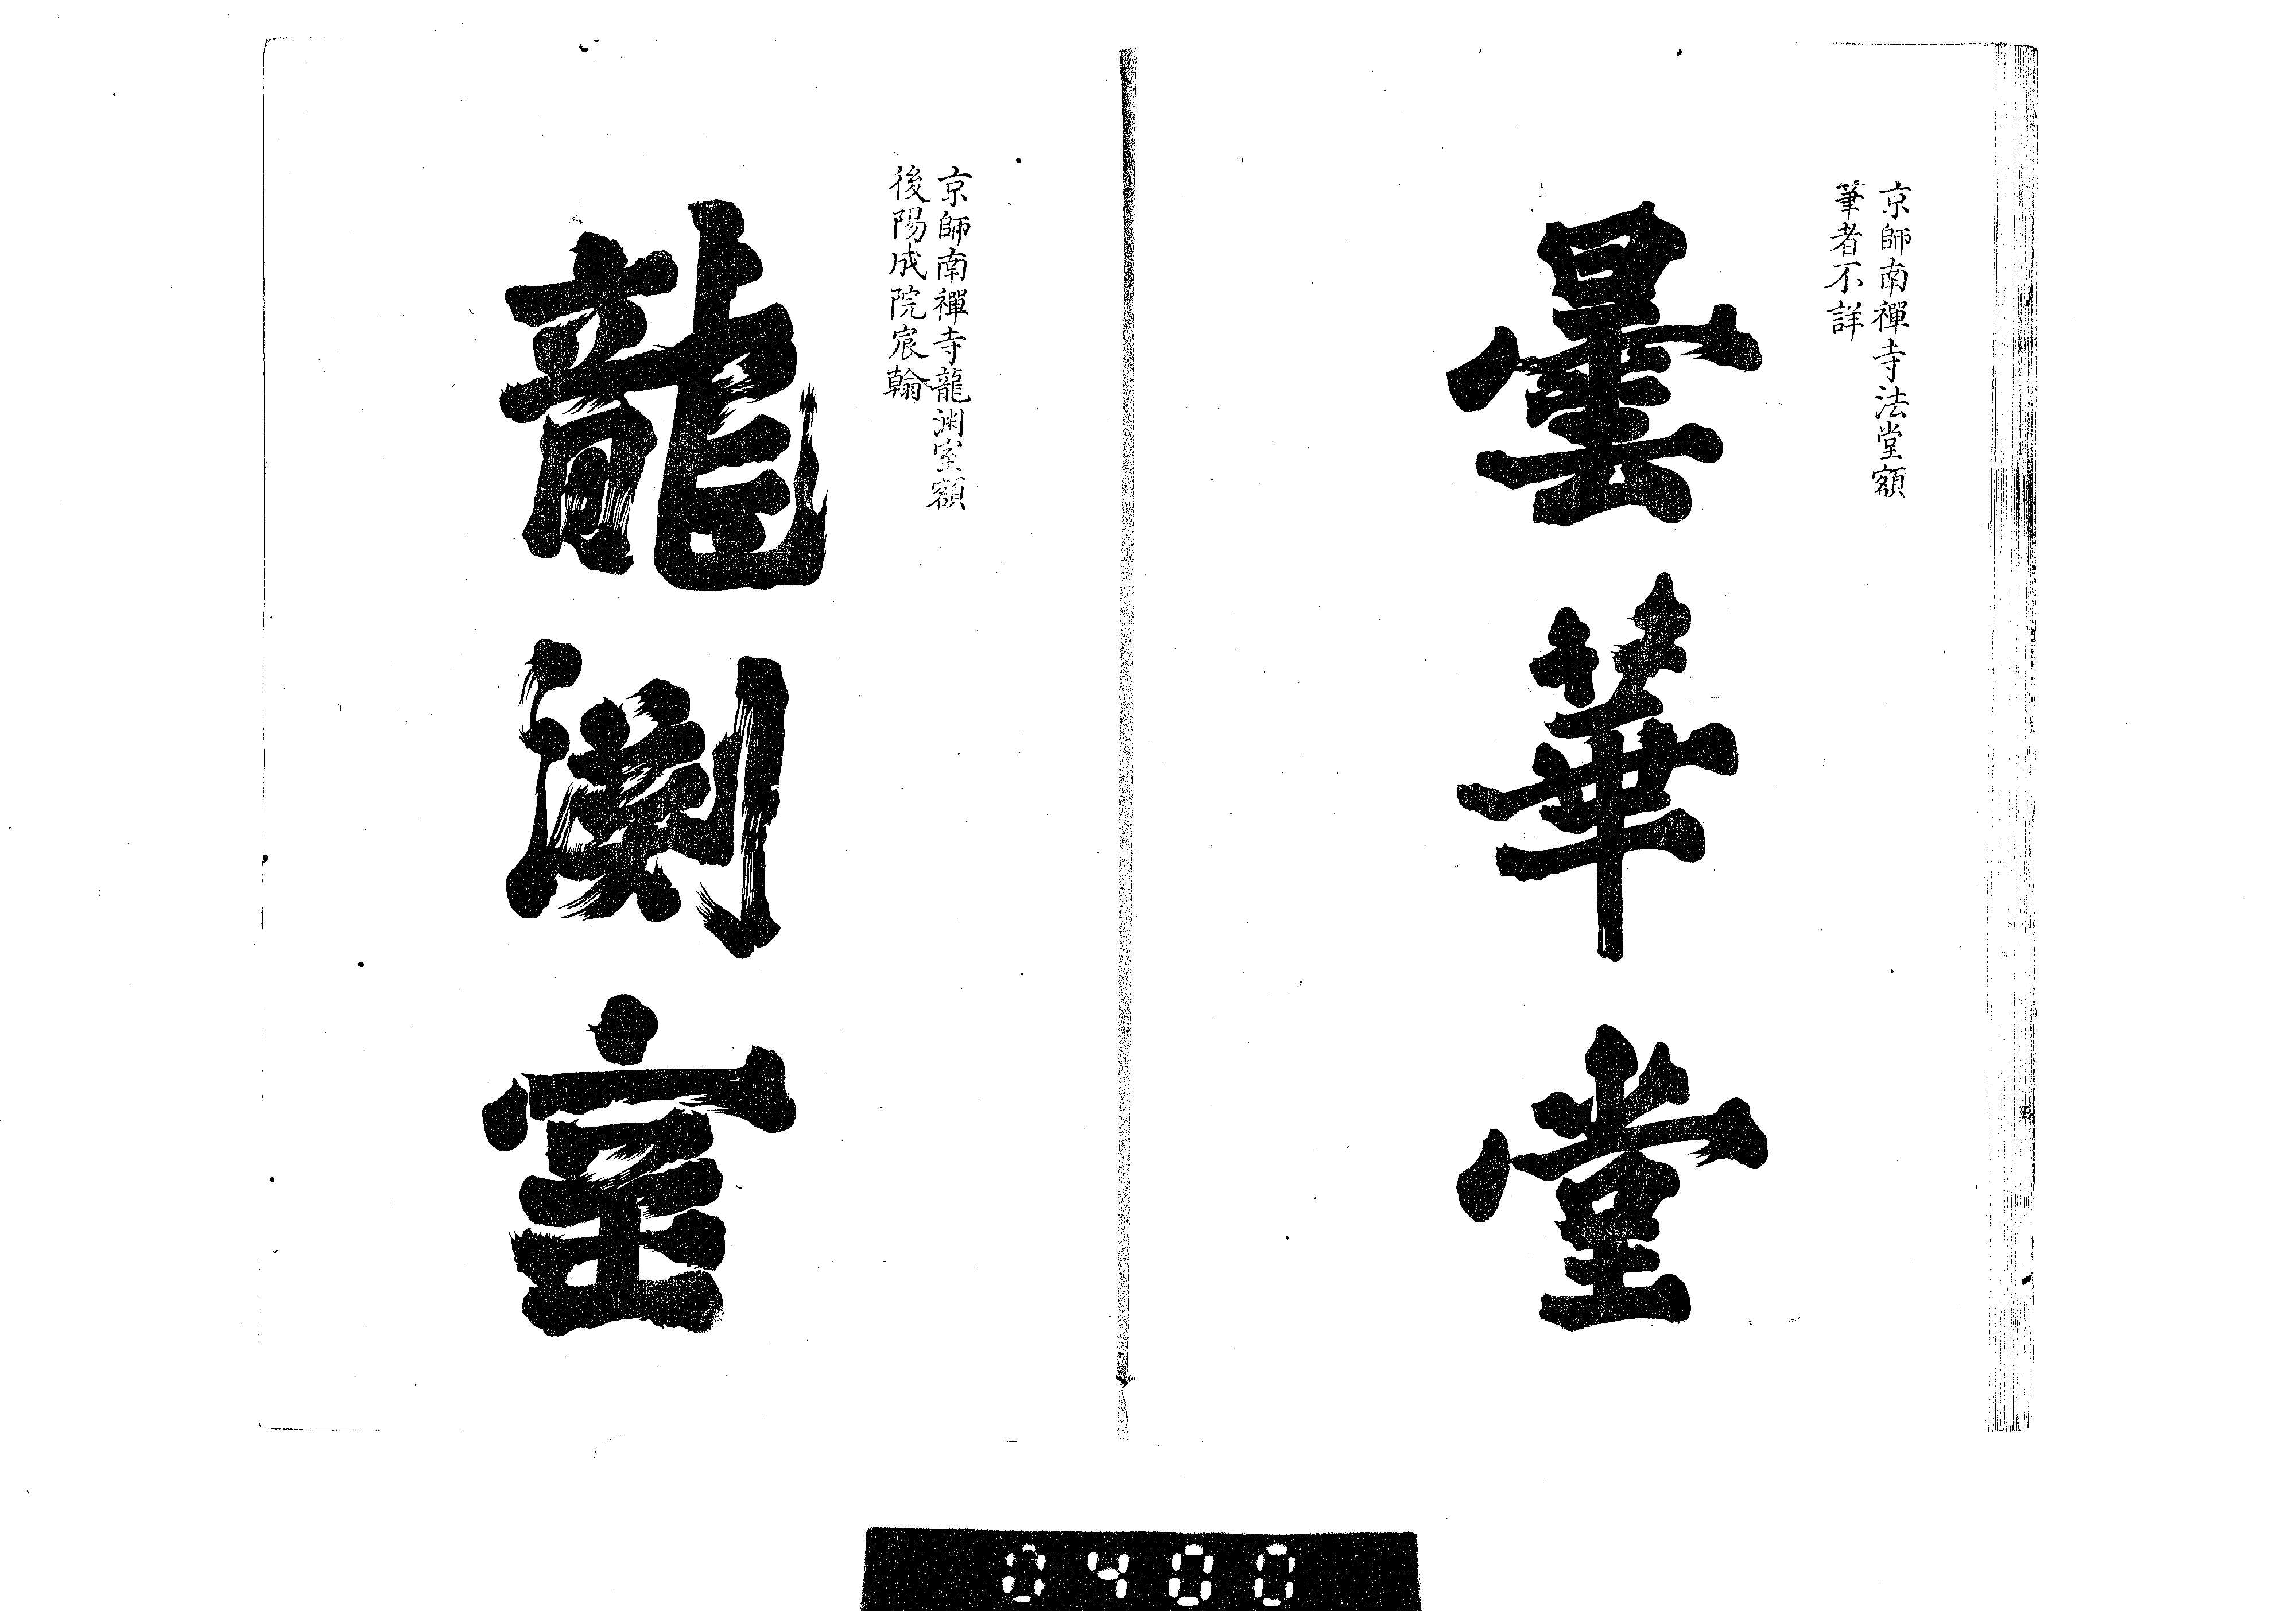 京師南禪寺法堂額
筆者不詳
曇華堂
京師南禪寺龍渕室額
後陽成院宸翰
龍渕室
0400